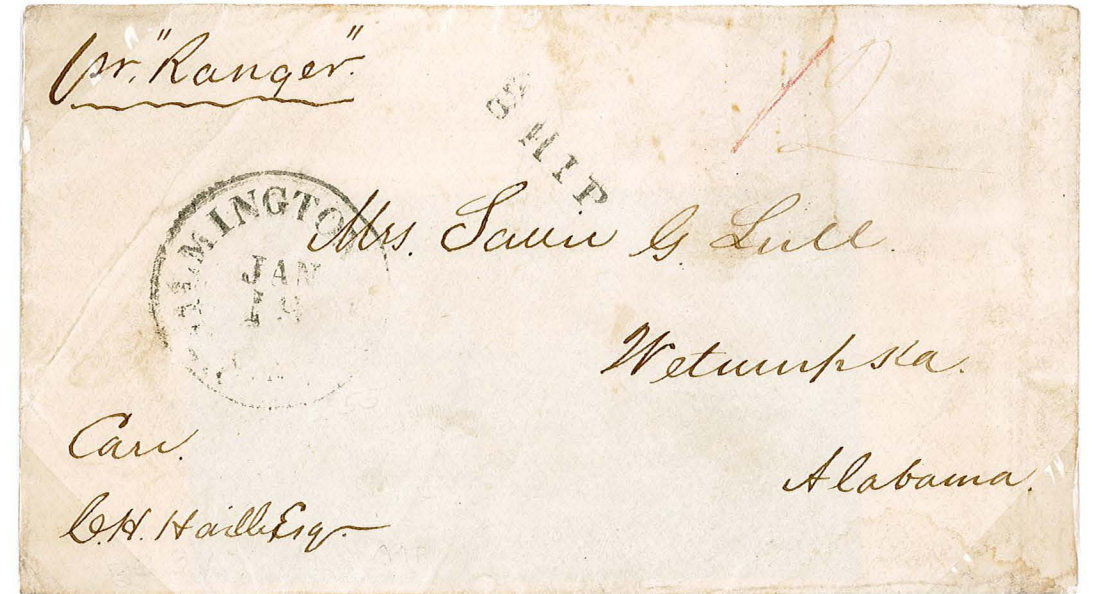 pr. "Ranger".
SHIP
12
WILMINGTON
JAN
19
Mrs. Savin G. Lull.
Wetumpska.
Alabama.
Care.
C.H. Hall Esq.